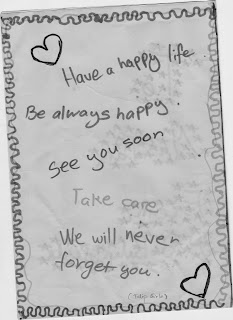 Have a happy life.
Be always happy.
See you soon
Take care
We will never
forget you.